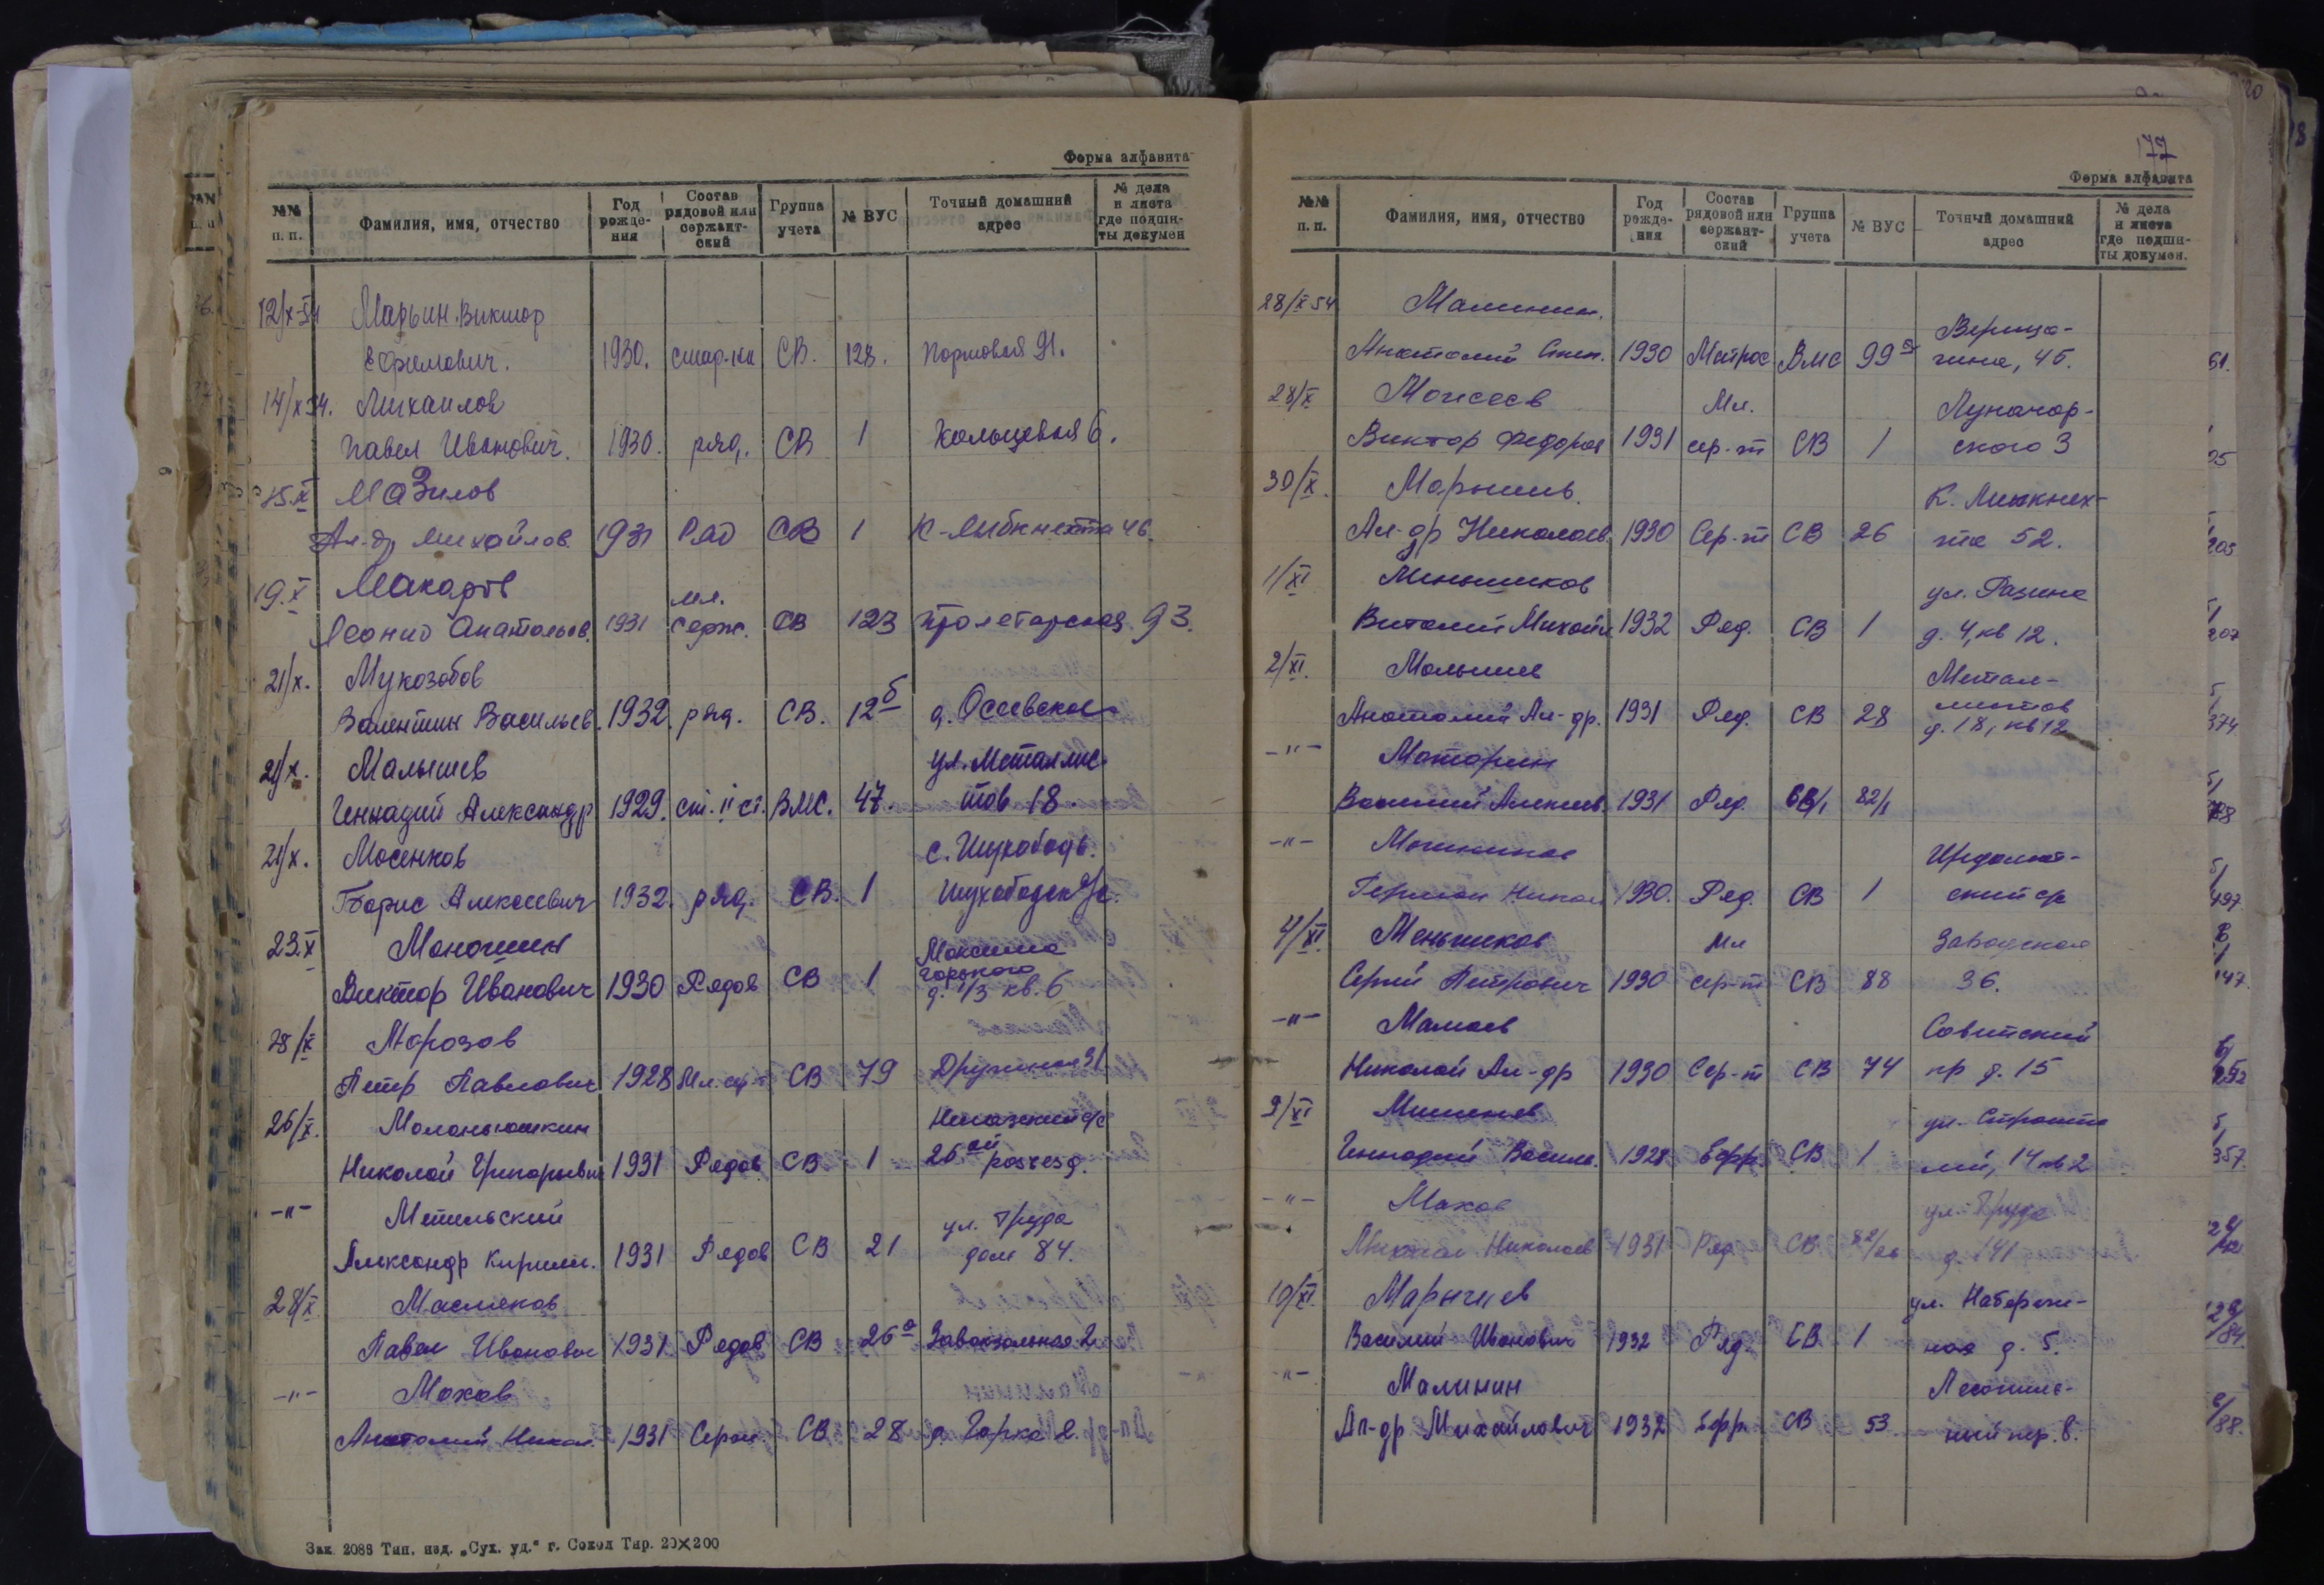 Форма алфавита
№№ п. п. Фамилия, имя, отчество Год рождения Состав рядовой или сержантский Группа учета № ВУС Точный домашний адрес № дела и листа где подшиты докумен
12/X-54 Марьин Виктор
Ефимович. 1930. СВ. 128. Портовая 91.
14/X 54. Михаилов
Павел Иванович. 1930. ряд. СВ 1 Кольцевая 6.
15.X Мазилов
Ал-др Михайлов. 1931 Ряд СВ 1 К-Либкнехта 46.
19.X Макаров мл.
Леонид Анатольев. 1931 Серж. СВ 123 Пролетарская 93.
21/X. Мукозобов
Валентин Васильев. 1932. ряд. СВ. 12б д.
21/X. Малышев ул. Металлис-
Геннадий Александр 1929. ст. II ст. ВМС. 47. тов 18.
21/X. Мосенков с. Шухободь.
Борис Алексеевич 1932. ряд. СВ. 1
23.X Максима
Виктор Иванович 1930 Рядов СВ 1 Горького д. 1/3 кв. 6
28/X Морозов
Петр Павлович 1928 Мл. сер-т СВ 79
26/X. Маланьюшкин
Николай Григорьевич 1931 Рядов. СВ 1 26ой разъезд.
-"- Метельский ул. Труда
Александр Кирилл. 1931 Рядов СВ 21 дом 84.
28/X Масляков
Павел Иванович 1931 Рядов СВ 26а Завокзальная 2
-"- Махов
Анатолий Никол. 1931 Серж. СВ 28 д. Горка 2.
Зак. 2088 Тип. изд. „Сух. уд.“ г. Сокол Тир. 20×200
177
Форма алфавита
№№ п. п. Фамилия, имя, отчество Год рождения Состав рядовой или сержантский Группа учета № ВУС Точный домашний адрес № дела и листа где подшиты докумен.
28/X 54 Малинин. Вереща-
Анатолий 1930 Матрос ВМС 99 гина, 45.
28/X Моисеев Мл. Луначар-
Виктор Федоров 1931 сер-т СВ 1 ского 3
30/X. К. Либкнех-
Ал-др Николаев. 1930 Сер-т СВ 26 та 52.
1/XI Меньшиков ул. Разина
Виталий Михайл 1932 Ряд. СВ 1 д. 4, кв 12.
2/XI. Малышев Метал-
Анатолий Ал-др. 1931 Ряд. СВ 28 листов д. 18, кв 12
-"- Моторин
Василий Алексеев. 1931 Ряд. СВ/1 82/1
-"-
Герман Никол 1930. Ряд. СВ 1
4/XI Меньшиков Мл Заводская
Сергей Петрович 1930 сер-т СВ 88 36.
-"- Мамаев Советский
Николай Ал-др 1930 Сер-т СВ 74 пр д. 15
9/XI ул. Строите
Геннадий Василь. 1928 Ефр. СВ 1 лей, 14 кв 2
-"- Махов ул. Труда
Николаев 1931 Ряд. СВ д. 141
10/XI. Марычев ул. Набереж-
Василий Иванович 1932 Ряд. СВ 1 ная д. 5.
-"- Малинин
Ал-др Михайлович 1932 Ефр. СВ 53 ный пер. 8.